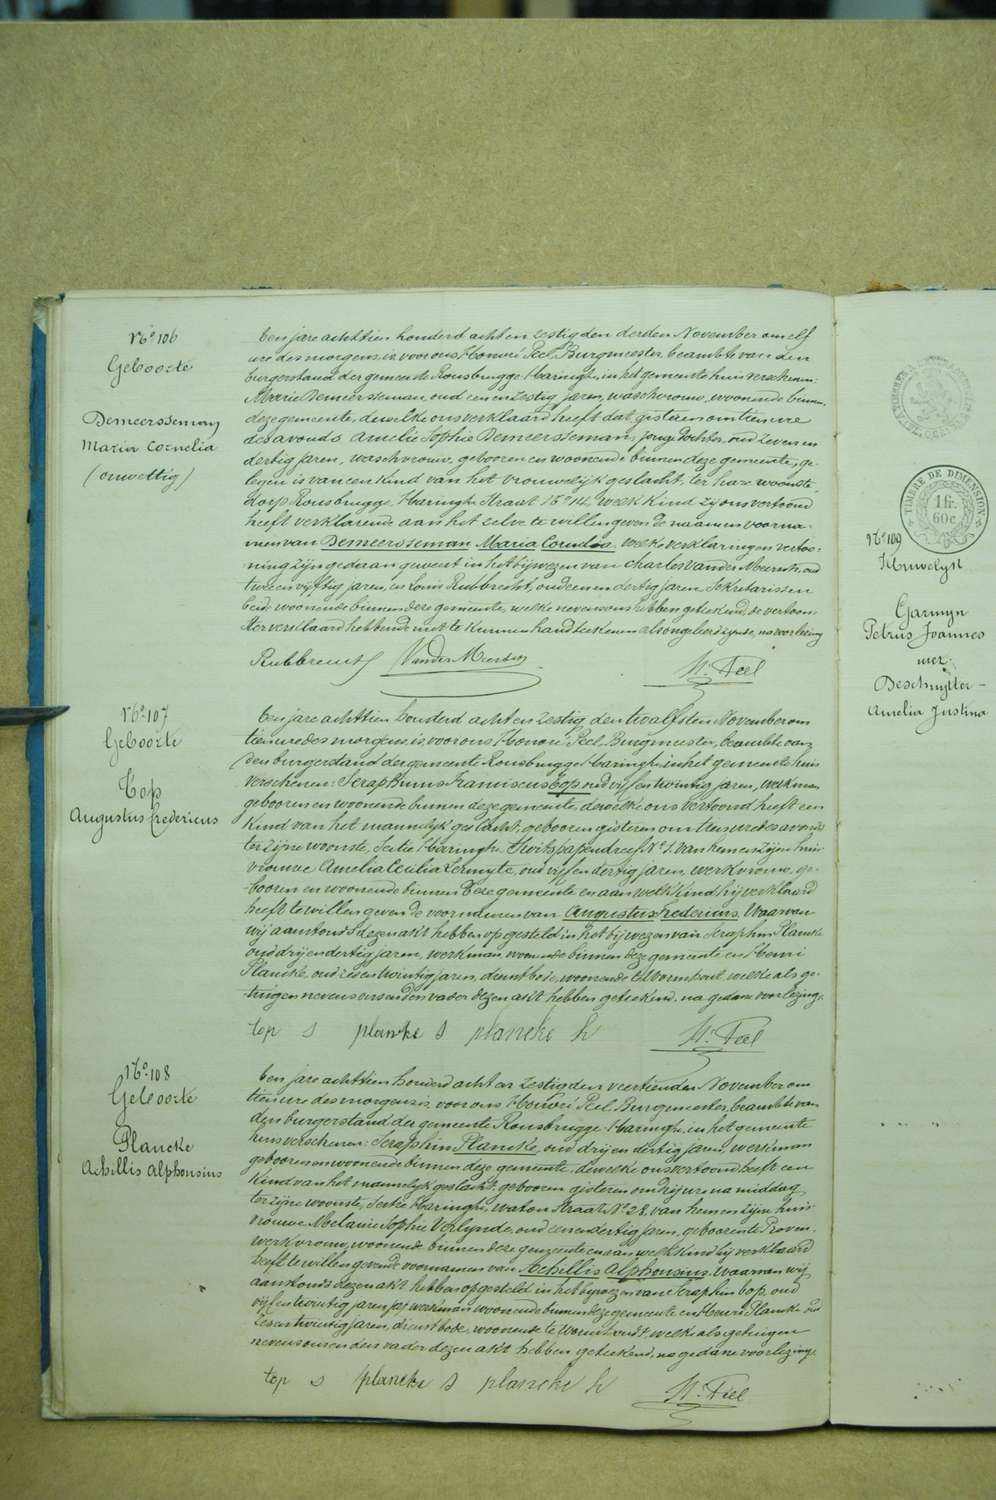 N° 106
Geboorte
Demeersseman
Maria Cornelia
(onwettig)
Ten jare achttien honderd acht en zestig den derden November om elf
ure des morgens, is voor ons Honoré Feel, Burgmeester beambte van den
burgerstand der gemeente Rousbrugge-Haringhe, in het gemeente huis verschenen:
Marie Demeersseman, oud een en zestig jaren, waschvrouw, woonende binnen
deze gemeente, dewelke ons verklaard heeft dat gisteren om tien ure
des avonds Amelie Sophie Demeersseman, jonge dochter, oud zeven en
dertig jaren, waschvrouw, gebooren en woonende binnen deze gemeente, ge-
legen is van een kind van het vrouwelijk geslacht, ter haze woonste,
dorp Rousbrugge-Haringhe straat N° 14, welk kind zij ons vertoond
heeft verklarende aan het zelve te willen geven de naam en voorna-
men van Demeersseman Maria Cornelia. Welke verklaring en vertoo-
ning zijn gedaan geweest in het bijwezen van Charles Vander Meersch, oud
twee en vijftig jaren, en Louis Rubbrecht, oud een en dertig jaren, Sekretarissen
beide woonende binnen deze gemeente, welke nevens ons hebben geteekend, de vertoon-
ster verklaard hebbende niet te kunnen handteekenen als ongeleerd zijnde, na voorlezing
Rubbrecht Vander Meersch H. Feel
N° 107
Geboorte
Top
Augustus Fredericus
Ten jare achttien honderd acht en zestig, den twaalfsten November om
tien ure des morgens, is voor ons Honoré Feel, Burgmeester, beambte van
den burgerstand der gemeente Rousbrugge-Haringhe, in het gemeente huis
verschenen: Seraphinus Franciscus Top, oud vijf en twintig jaren, werkman
gebooren en woonende binnen deze gemeente, dewelke ons vertoond heeft een
kind van het mannelijk geslacht, gebooren gisteren om tien ure des avonds
ter zijne woonste, Sectie Haringhe, N° 1, van hem en zijne huis-
vrouwe Amelia Cecilia Lermyte, oud vijf en dertig jaren, werkvrouw, ge-
booren en woonende binnen deze gemeente en aan welk kind hij verklaard
heeft te willen geven de voornamen van Augustus Fredericus. Waarvan
wij aanstonds dezen akt hebben opgesteld in het bijwezen van Seraphin Plancke
oud drij en dertig jaren, werkman, woonende binnen deze gemeente en Henri
Plancke, oud zes en twintig jaren, dienstbode, woonende te Woumbout, welke als ge-
tuigen nevens ons en den vader dezen akt hebben geteekend, na gedane voorlezing.
top s plancke s plancke h H. Feel
N° 108
Geboorte
Plancke
Achillis Alphonsius
Ten jare achttien honderd acht en zestig den veertienden November om
tien ure des morgens is voor ons Honoré Feel, Burgmeester, beambte van
den burgerstand der gemeente Rousbrugge-Haringhe, in het gemeente
huis verschenen: Seraphin Plancke, oud drij en dertig jaren, werkman
gebooren en woonende binnen deze gemeente, dewelke ons vertoond heeft een
kind van het mannelijk geslacht, gebooren gisteren om drij ure na middag,
ter zijne woonste, Sectie Haringhe, Waton straat N° 28, van hem en zijne huis-
vrouwe Melanie Sophie Verlynde, oud een en dertig jaren, gebooren te Proven,
werkvrouw, woonende binnen deze gemeente en aan welk kind hij verklaard
heeft te willen geven de voornamen van Achillis Alphonsius. Waarvan wij
aanstonds dezen akt hebben opgesteld in het bijwezen van Seraphin top, oud
vijf en twintig jaren, werkman woonende binnen deze gemeente en Henri Plancke oud
zes en twintig jaren, dienstbode, woonende te welke als getuigen
nevens ons en den vader dezen akt hebben geteekend, na gedane voorlezing.
top s plancke s plancke h H. Feel
TIMBRE DE DIMENSION
1 fr.
60 c.
N° 109
Huwelyk
Garmyn
Petrus Joannes
met
Deschuytter-
Amelia Justina